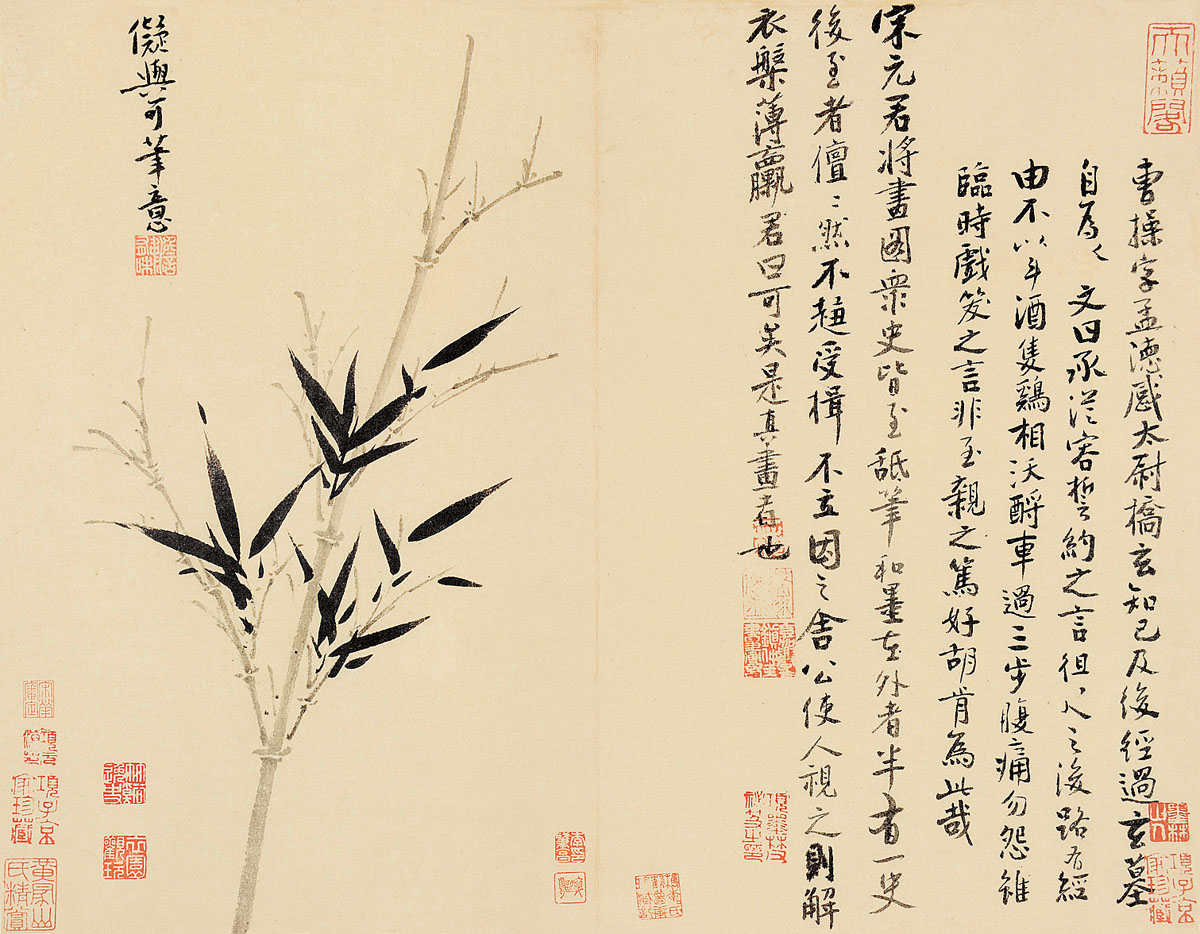 天籟閣
曹操字孟德感太尉橋玄知己及後經過玄墓
自為之文曰承從容誓約之言徂之後路有經
由不以斗酒隻鷄相沃酹車過三步腹痛勿怨雖
臨時戲笑之言非至親之篤好胡肯為此哉
宋元君將畫圖衆史皆至舐筆和墨在外者半有一史
後至者儃〻然不趨受揖不立因之舍公使人視之則解
衣槃薄臝君曰可矣是真畫者也
儗與可筆意
墨林山人
項子京家珍藏
項子京家珍藏